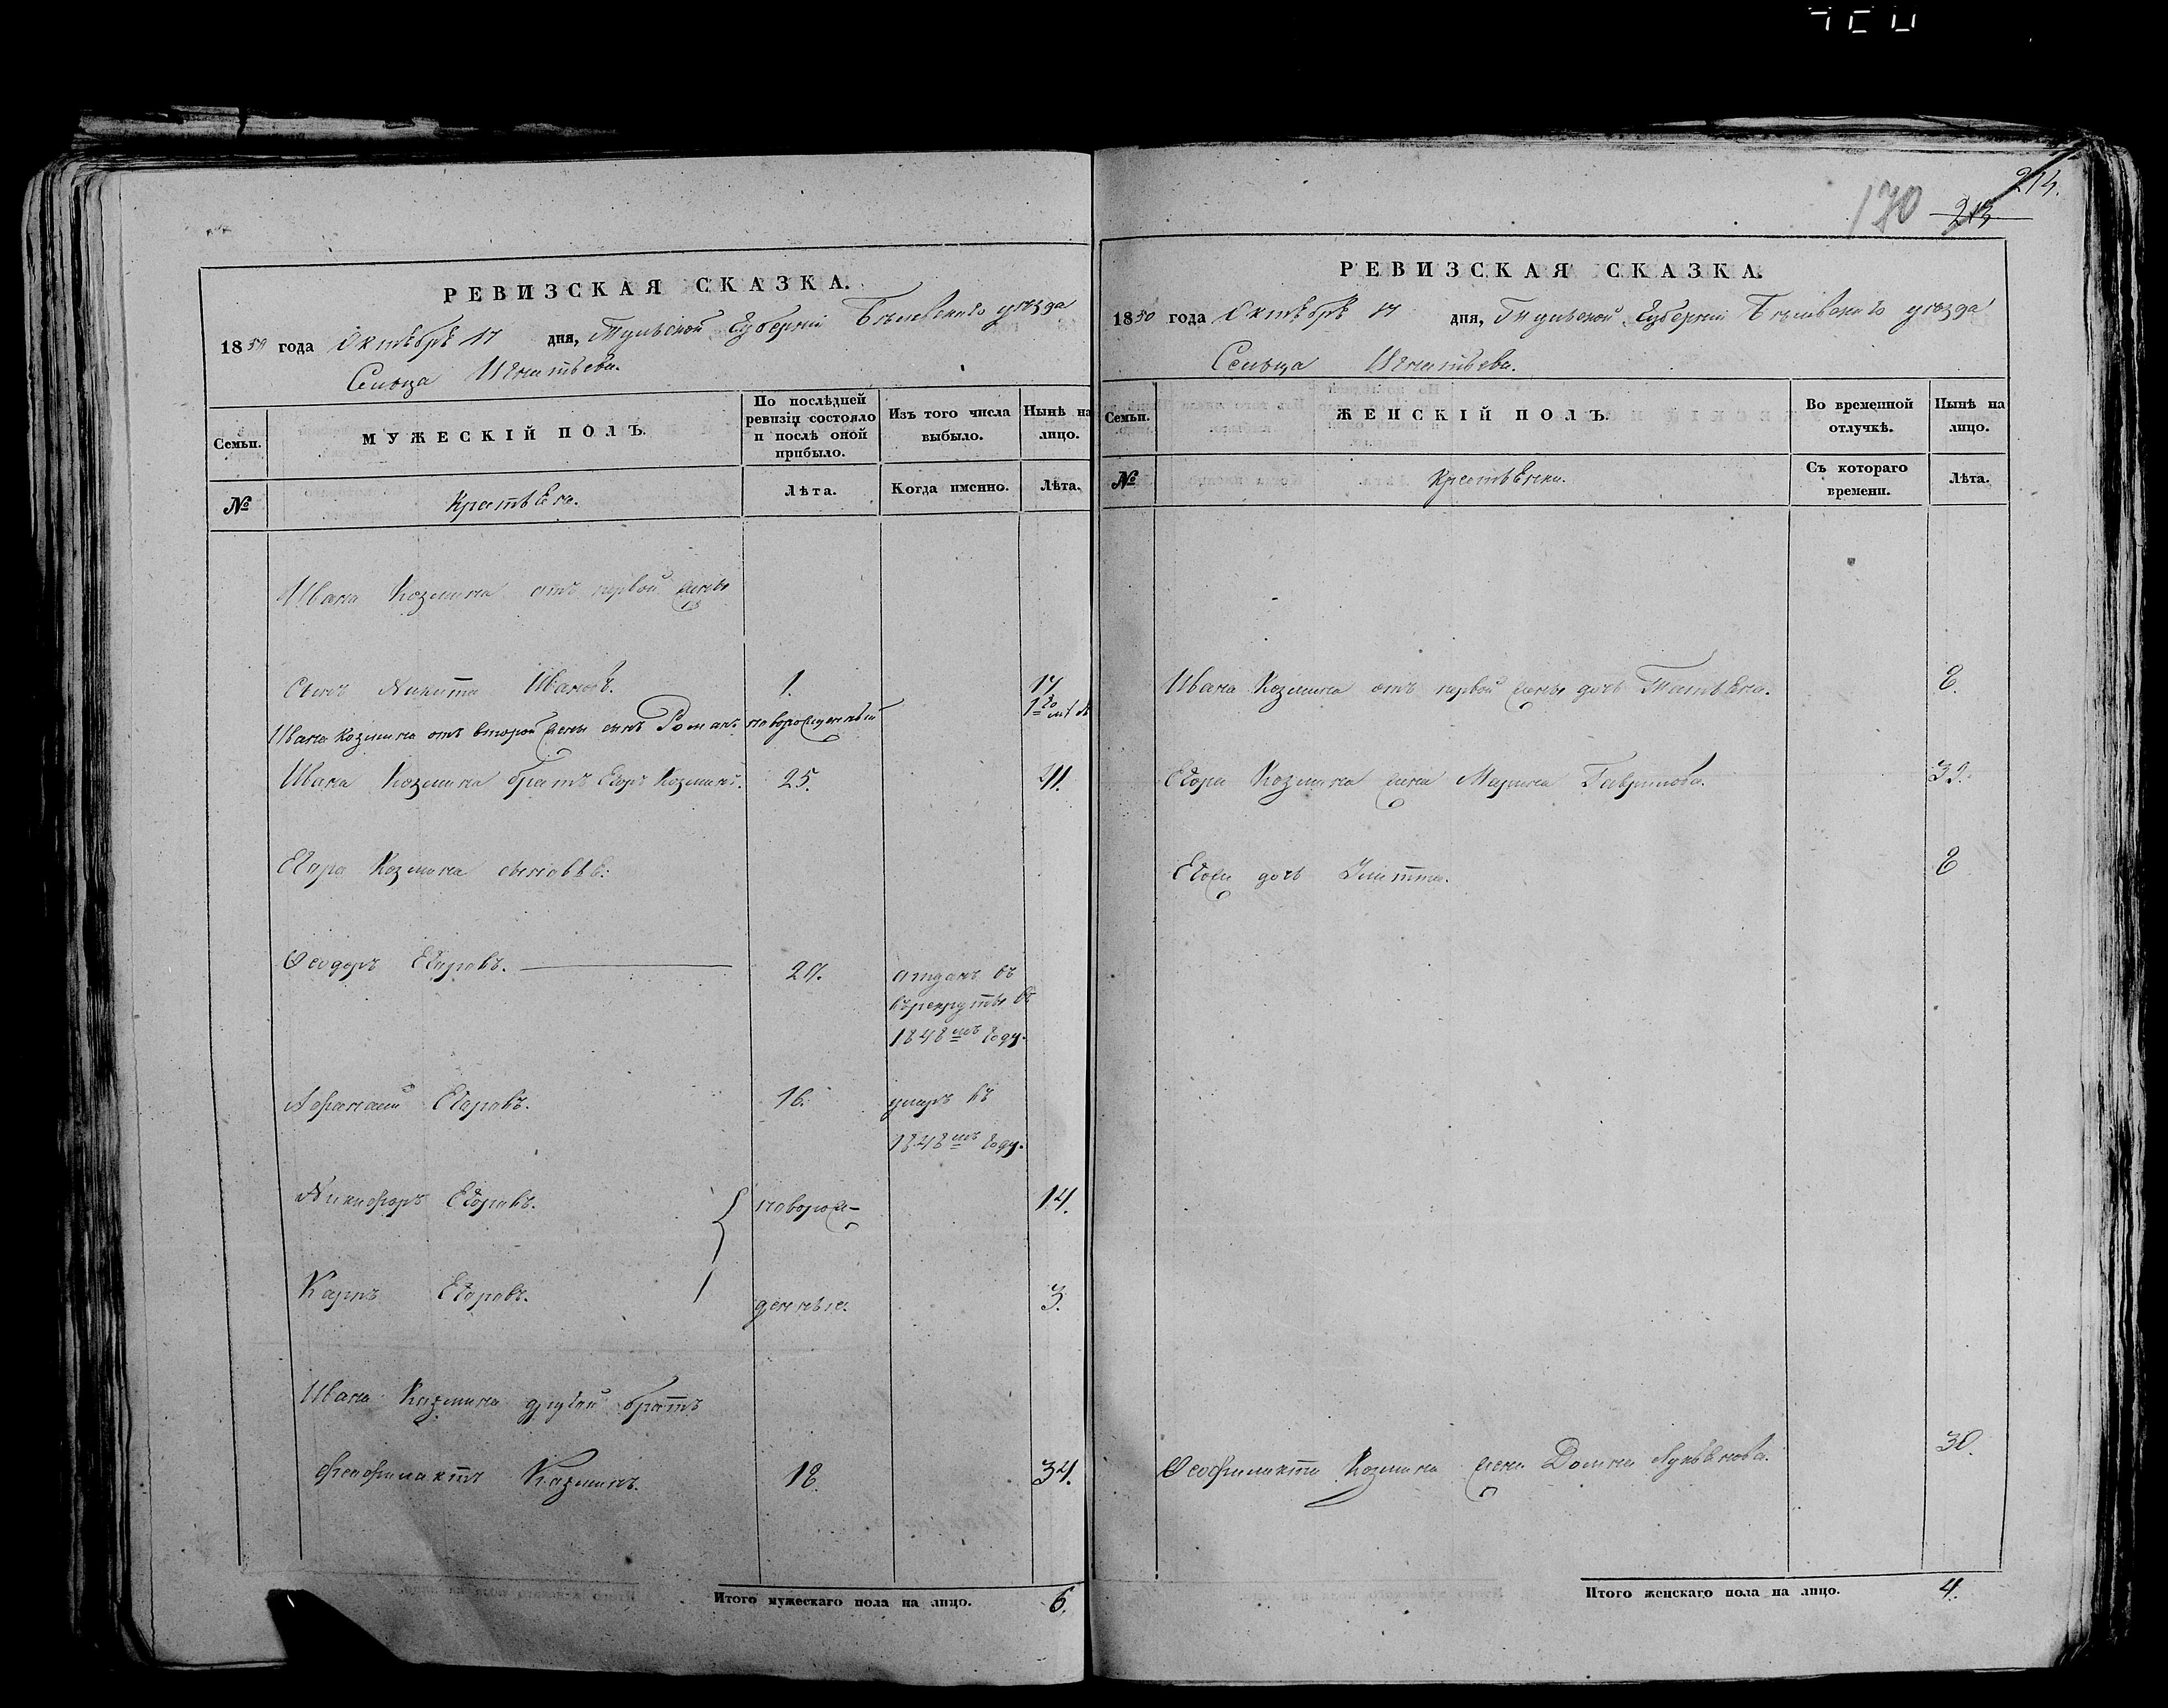 170 213 214.
РЕВИЗСКАЯ СКАЗКА.
1850 года Октября 17 дня, Тульской Губернии Белевскаго уезда
Сельца Игнатьева.
Семьи.
МУЖЕСКІЙ ПОЛЪ.
По послѣдней ревизіи состояло и послѣ оной прибыло.
Изъ того числа выбыло.
Нынѣ на лицо.
№
Крестьяне.
Лѣта.
Когда именно.
Лѣта.
Ивана Козмина отъ первой жены
Сынъ Никита Ивановъ. 1. 17
Ивана Козмина отъ второй жены сынъ Романъ новорожденный
Ивана Козмина братъ Егоръ Козминъ. 25. 41.
Егора Козмина сыновья:
Феодоръ Егоровъ. 20. отданъ въ
въ рекруты въ
1848мъ году.
Афанасий Егоровъ. 16. умеръ въ
1848мъ году.
Никифоръ Егоровъ. новорож- 14.
Карпъ Егоровъ. денные. 3.
Ивана Козмина другой братъ
Феофилактъ Козминъ. 18. 34.
Итого мужескаго пола на лицо. 6.
РЕВИЗСКАЯ СКАЗКА.
1850 года Октября 17 дня, Тульской Губернии Белевскаго уезда
Сельца Игнатьева.
Семьи.
ЖЕНСКІЙ ПОЛЪ.
Во временной отлучкѣ.
Нынѣ на лицо.
№
Крестьянки.
Съ котораго времени.
Лѣта.
Ивана Козмина отъ первой жены дочь Татьяна. 8.
Егора Козмина жена Марина Гаврилова. 39.
Егожъ дочь Улитта. 8
Феофилакта Козмина жена Домна Лукьянова. 30.
Итого женскаго пола на лицо. 4.